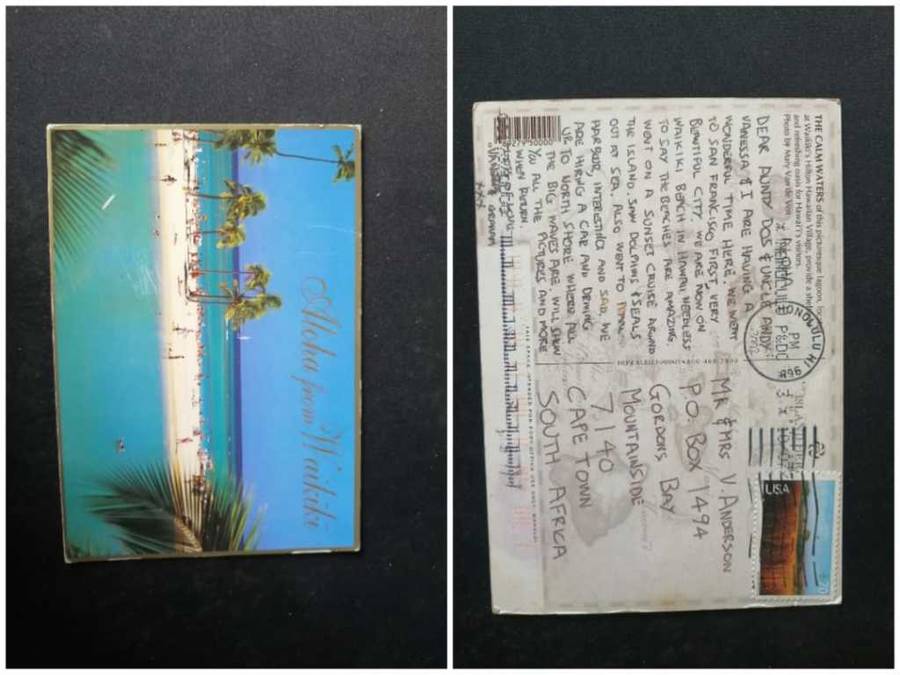 Aloha from Waikiki
THE CALM WATERS of this picturesque lagoon,
at Waikiki's Hilton Hawaiian Village, provide a
and refreshing oasis for Hawaii's visitors.
Photo by Mary Van de Ven
ALOHA
HONOLULU HI
PM
P&DC
996
DEAR AUNT DOS & UNCLE ANDY
VANESSA & I ARE HAVING A
WONDERFUL TIME HERE. WE WENT
TO SAN FRANCISCO FIRST, VERY
BEAUTIFUL CITY. WE ARE NOW ON
WAIKIKI BEACH IN HAWAII NEEDLESS
TO SAY THE BEACHES ARE AMAZING.
WENT ON A SUNSET CRUISE AROUND
THE ISLAND. SAW DOLPHINS & SEALS
OUT AT SEA. ALSO WENT TO PEARL
HARBOUR, INTERESTING AND SAD. WE
ARE HIRING A CAR AND DRIVING
UP TO NORTH SHORE WHERE ALL
THE BIG WAVES ARE. WILL SHOW
YOU ALL THE PICTURES AND MORE
WHEN RETURN.
GRAHAM
XXX
MR & MRS V. ANDERSON
P.O. BOX 1494
GORDONS BAY
MOUNTAINSIDE
7140
CAPE TOWN
SOUTH AFRICA
USA